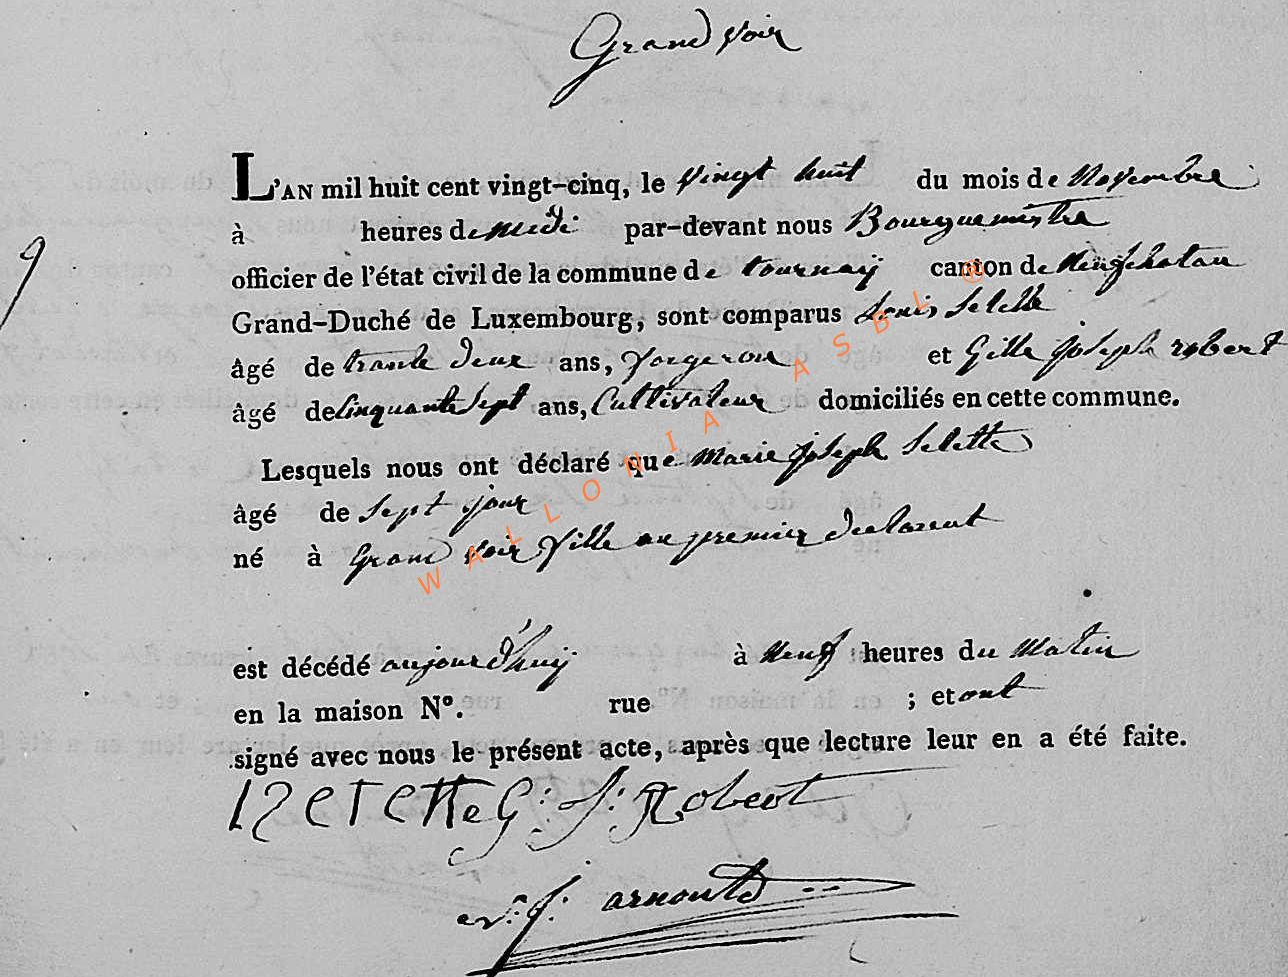 Grand voir
9
L'AN mil huit cent vingt-cinq, le vingt huit du mois de Novembre
à heures de midi par-devant nous Bourguemestre
officier de l'état civil de la commune de tournay canton de Neufchatau
Grand-Duché de Luxembourg, sont comparus Louis Selette
âgé de trante deux ans, forgeron et Gille joseph robert
âgé de Cinquante Sept ans, Cultivateur domiciliés en cette commune.
Lesquels nous ont déclaré que Marie joseph Selette
âgé de Sept jour
né à Grand voir fille au premier declarant
est décédé aujourd'huy à Neuf heures du Matin
en la maison N°. rue ; et ont
signé avec nous le présent acte, après que lecture leur en a été faite.
G: J: Robert
arnould
WALLONIA ASBL ®